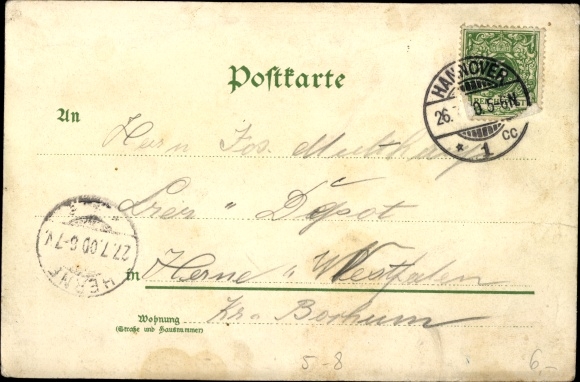 Postkarte
HANNOVER
26.7. 0.5-6N
* 1 cc
An
Herrn Jos.
Bier " Depot
27.7.00 6-7V
HERNE
in Herne i/ Westfalen
Wohnung
(Straße und Hausnummer)
Kr. Bochum
5-8
6,-